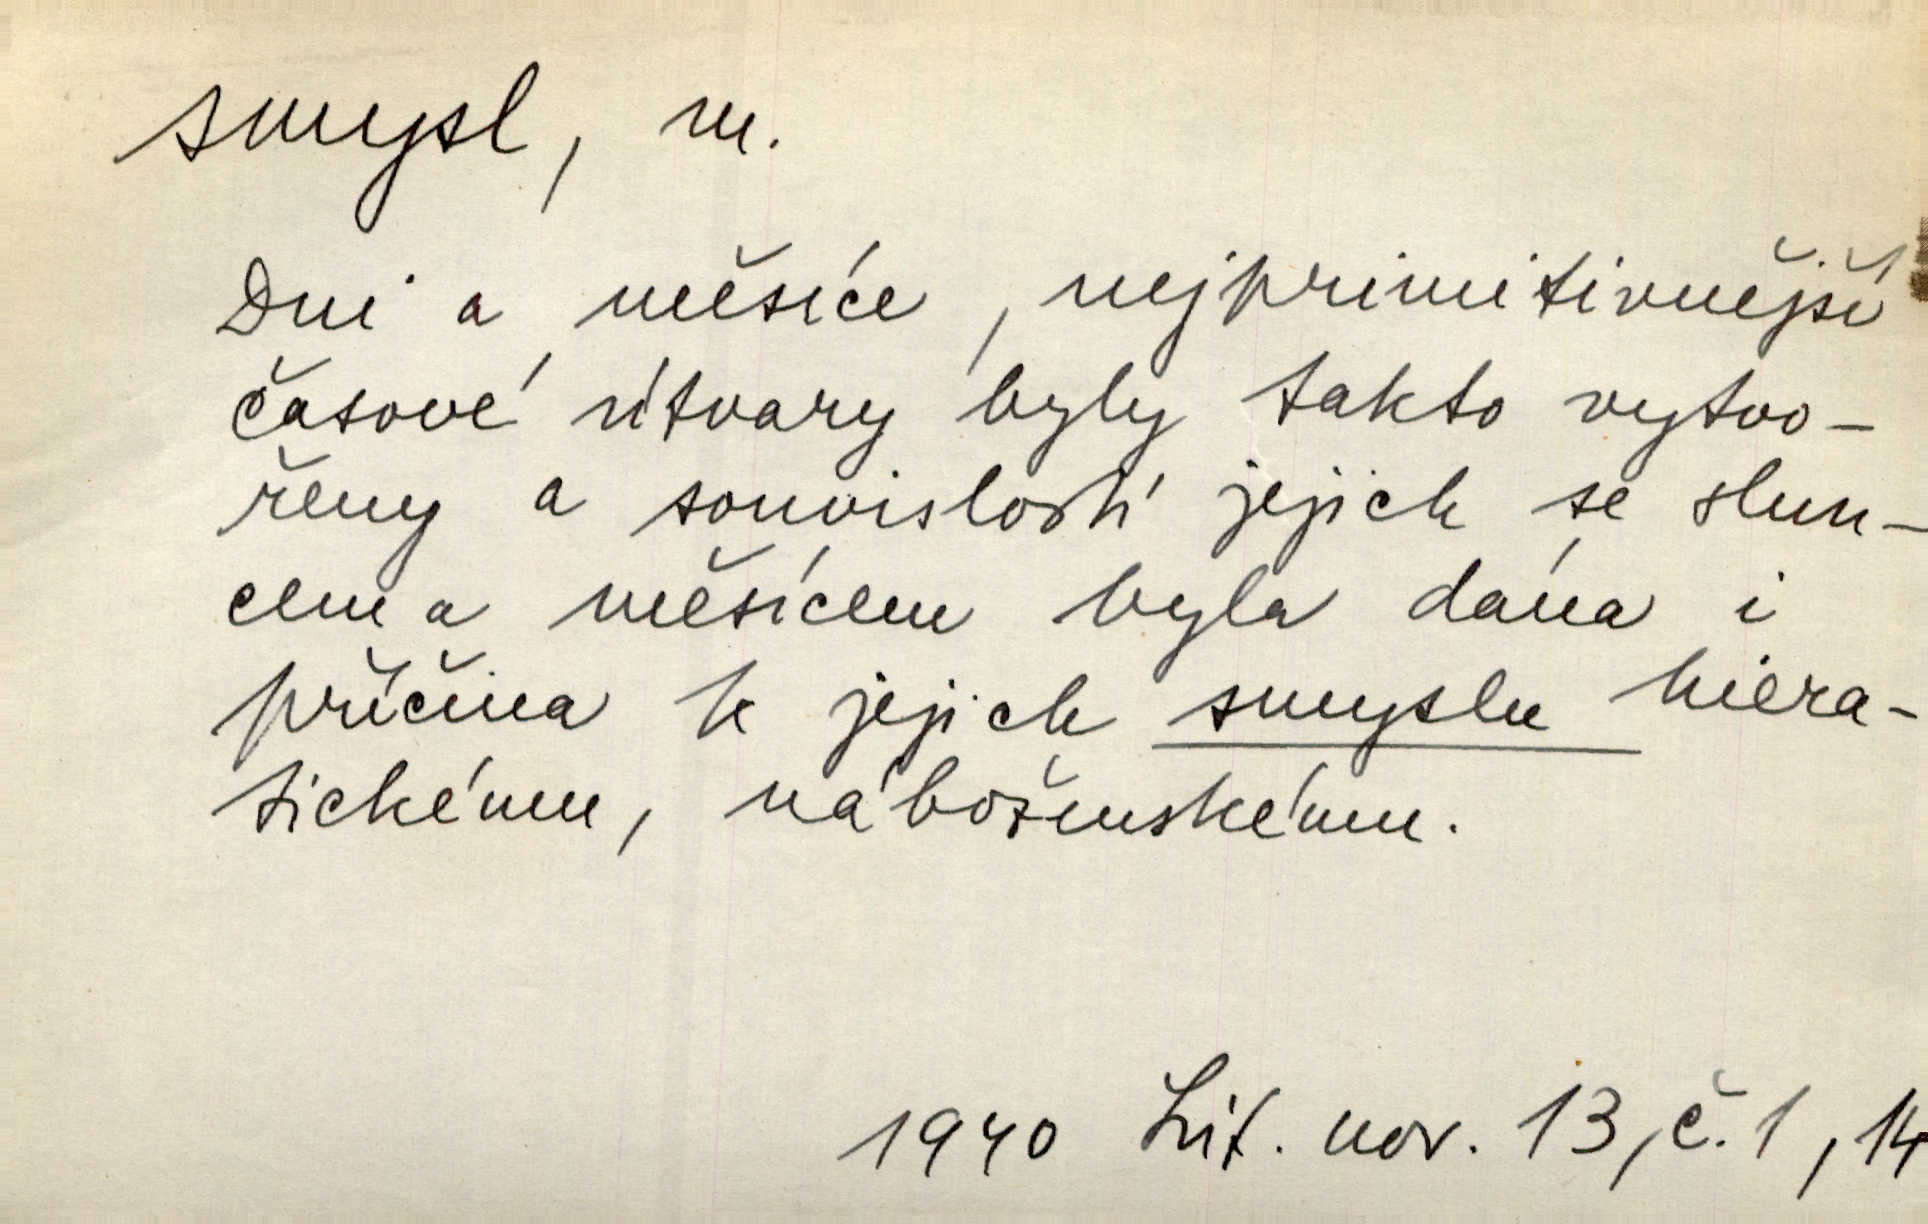 smysl, m.
Dni a měsíce, nejprimitivnější
časové útvary byly takto vytvo-
řeny a souvislostí jejich se slun-
cem a měsícem byla dána i
příčina k jejich smyslu hiera-
tickému, náboženskému.
1940 Lit. nov. 13, č. 1, 14